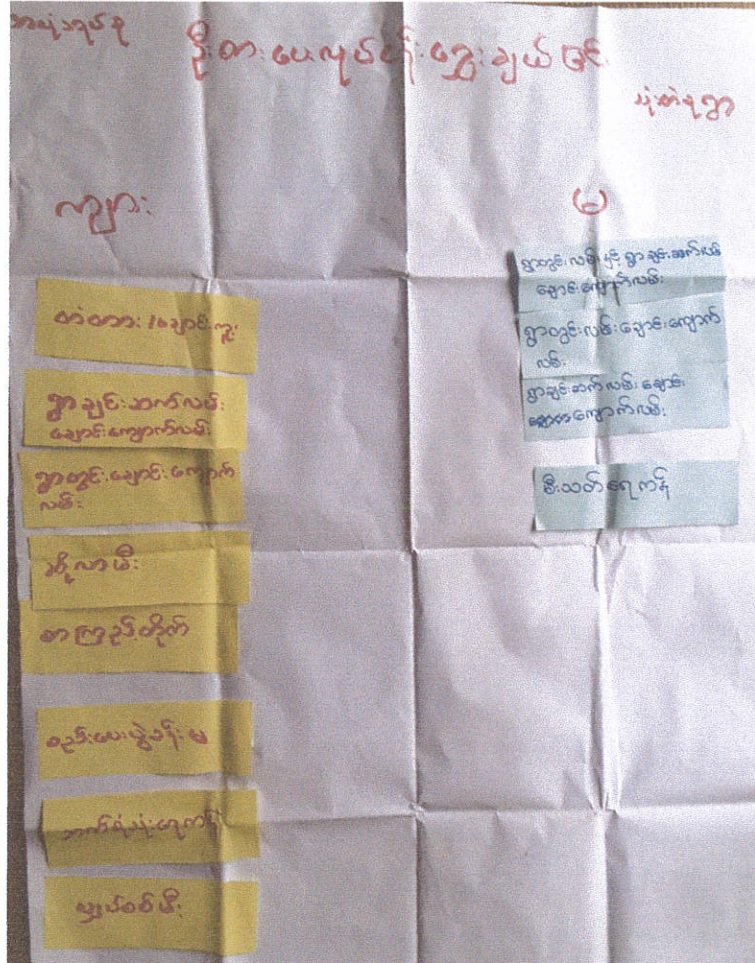 ဦးစားပေးလုပ်ငန်းရွေးချယ်ခြင်း
ကျား
မ
တံတား /ချောင်းကူး
ရွာချင်းဆက်လမ်း
ချောင်းကျောက်လမ်း
ရွာတွင်းချောင်းကျောက်
လမ်း
ဆိုလာမီး
စာကြည့်တိုက်
စည်းဝေးပွဲခန်းမ
ဘက်စုံသုံးရေကန်
လျှပ်စစ်မီး
ရွာတွင်းလမ်းနှင့် ရွာချင်းဆက်လမ်း
ချောင်းကျောက်လမ်း
ရွာတွင်းလမ်းချောင်းကျောက်
လမ်း
ရွာချင်းဆက်လမ်းချောင်း
ကျောက်လမ်း
မီးသတ်ရေကန်